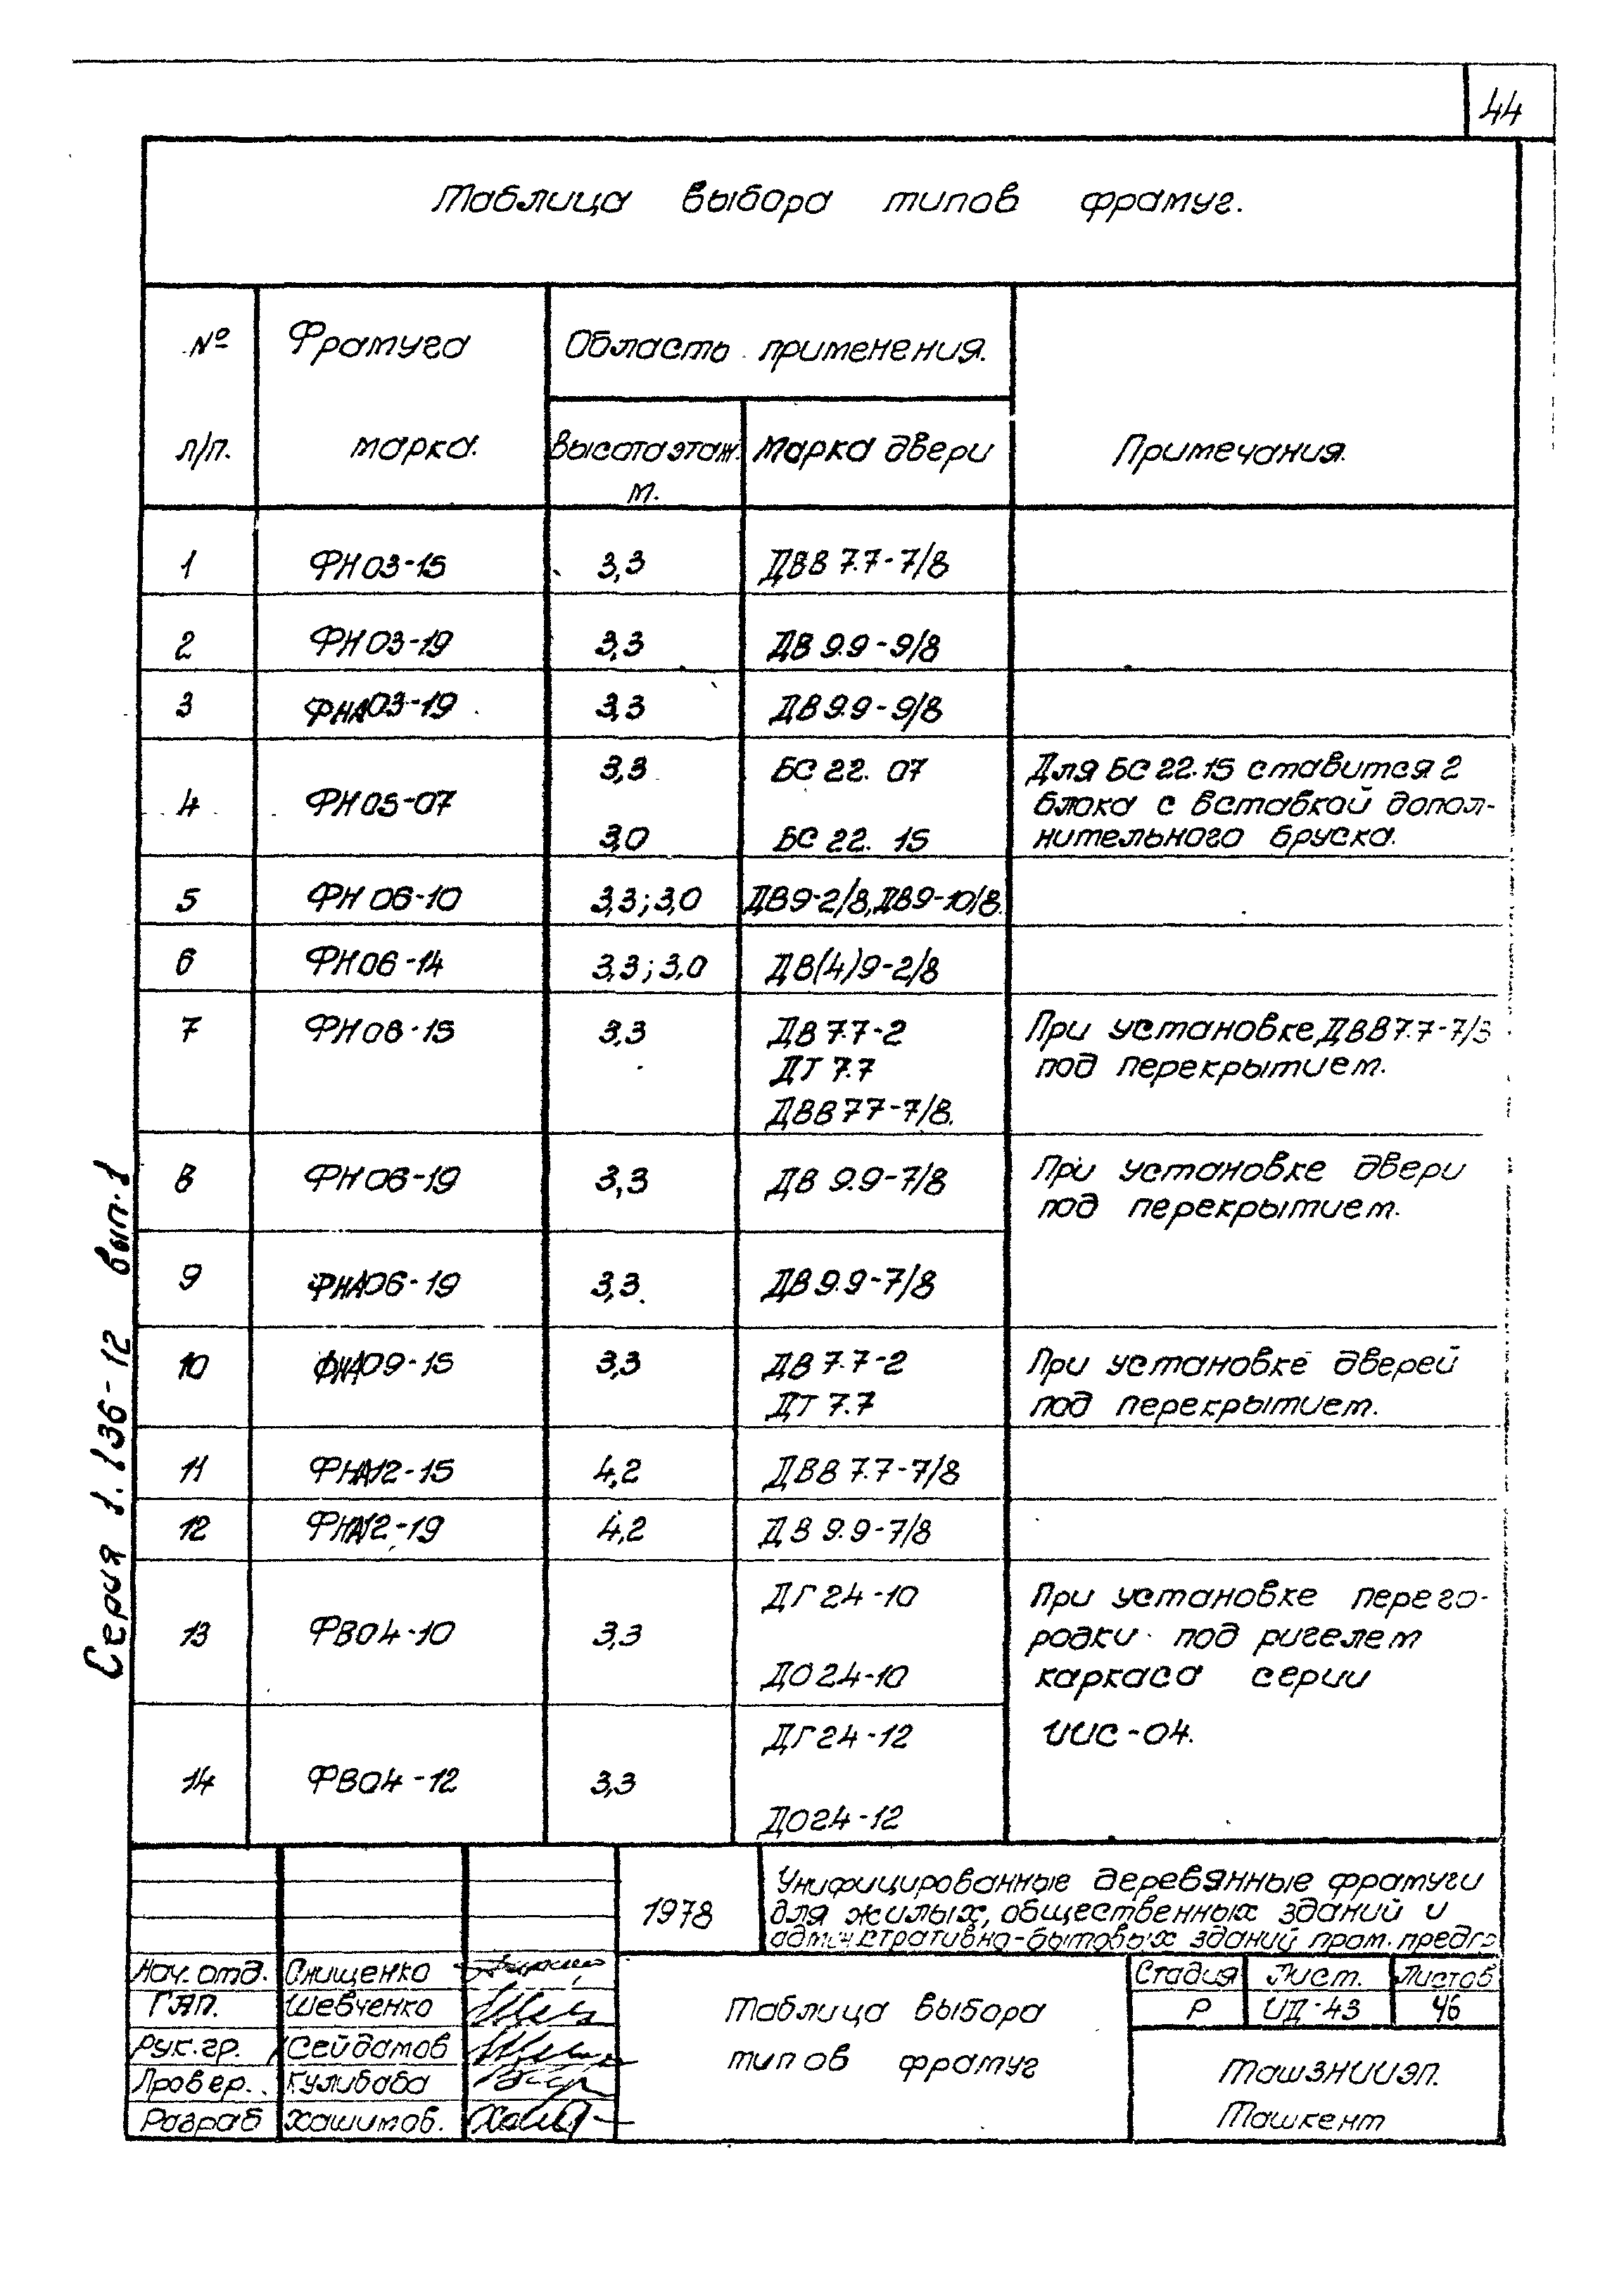 44
Таблица выбора типов фрамуг.
№ Фрамуга Область применения.
п/п. марка. Высота этаж. Марка двери Примечания.
м.
1 ФН03-15 3,3 ДВ8 7.7-7/8
2 ФН03-19 3,3 ДВ 9.9-9/8
3 ФНА03-19 3,3 ДВ 9.9-9/8
3,3 БС 22. 07 Для БС 22.15 ставится 2
4 ФН05-07 блока с вставкой допол-
3,0 БС 22. 15 нительного бруска.
5 ФН 06-10 3,3; 3,0 ДВ9-2/8, ДВ9-10/8.
6 ФН06-14 3,3; 3,0 ДВ(4)9-2/8
7 ФН06-15 3,3 ДВ 7.7-2 При установке, ДВ8 7.7-7/8
ДТ 7.7 под перекрытием.
ДВ8 7.7-7/8.
8 ФН06-19 3,3 ДВ 9.9-7/8 При установке двери
под перекрытием.
9 ФНА06-19 3,3. ДВ 9.9-7/8
10 ФНА09-15 3,3 ДВ 7.7-2 При установке дверей
ДТ 7.7 под перекрытием.
11 ФНА12-15 4,2 ДВ8 7.7-7/8
12 ФНА12-19 4,2 ДВ 9.9-7/8
ДГ24-10 При установке перего-
13 ФВ04-10 3,3 родки под ригелем
ДО24-10 каркаса серии
ДГ24-12 ИИС-04.
14 ФВ04-12 3,3
ДО24-12
Серия 1.136-12 вып.1
1978
Унифицированные деревянные фрамуги
для жилых, общественных зданий и
административно-бытовых зданий пром. предпр
Нач. отд. Онищенко
ГАП. Шевченко
Рук. гр. Сейдамов
Провер. Кулибаба
Разраб Хашимов.
Таблица выбора
типов фрамуг
Стадия Лист. Листов
Р ИД-43 46
ТашЗНИИЭП.
Ташкент